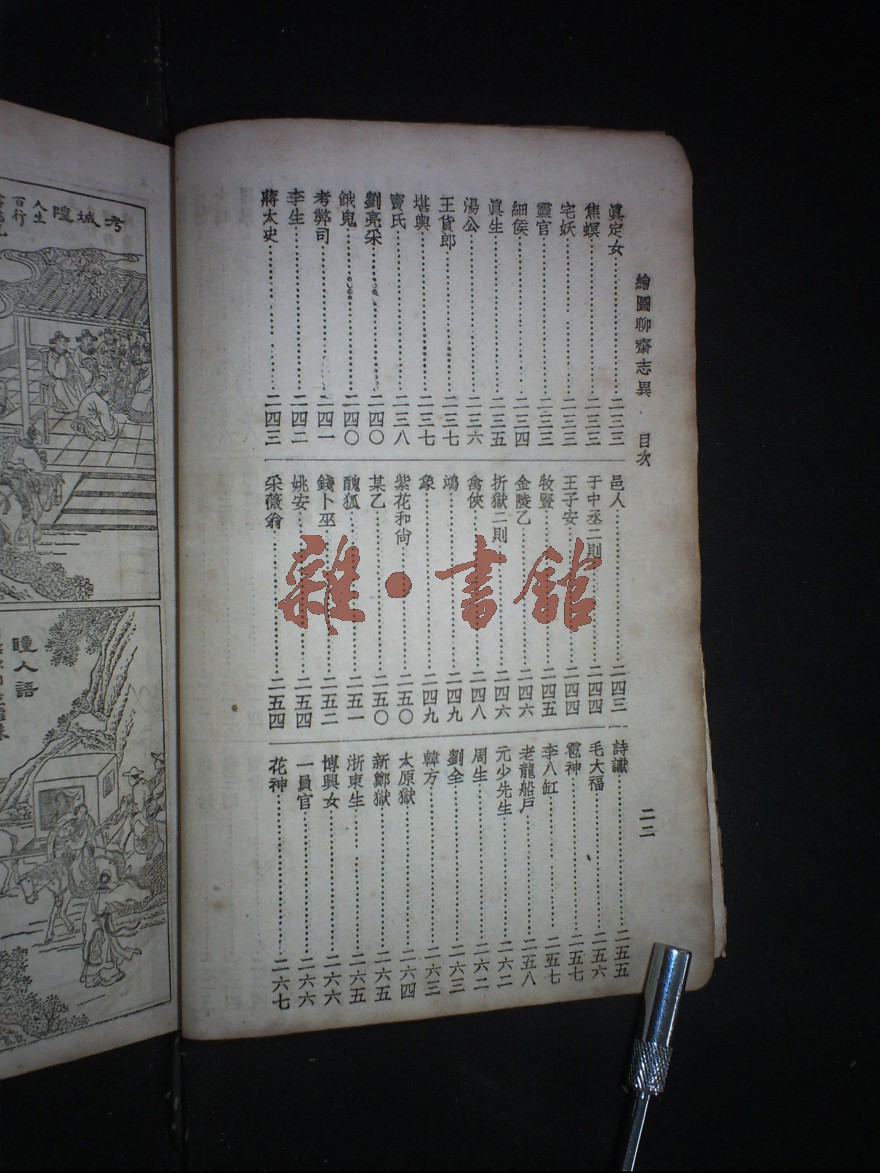 繪圖聊齋志異 目次 二二
眞定女………二三三
焦螟………二三三
宅妖………二三三
靈官………二三三
細侯………二三四
眞生………二三五
湯公………二三六
王貨郎………二三七
堪輿………二三七
竇氏………二三八
劉亮采………二四〇
餓鬼………二四〇
考弊司………二四一
李生………二四二
蔣太史………二四三
邑人………二四三
于中丞二則………二四四
王子安………二四四
牧豎………二四五
金陵乙………二四六
折獄二則………二四六
禽俠………二四八
鴻………二四九
象………二四九
紫花和尙………二五〇
某乙………二五〇
醜狐………二五一
錢卜巫………二五二
姚安………二五四
采薇翁………二五四
詩讖………二五五
毛大福………二五六
雹神………二五七
李八缸………二五七
老龍船戶………二五八
元少先生………二六二
周生………二六二
劉全………二六三
韓方………二六三
太原獄………二六四
新鄭獄………二六五
浙東生………二六五
博興女………二六六
一員官………二六六
花神………二六七
考城隍
人生
百行
瞳人語
雜·書館